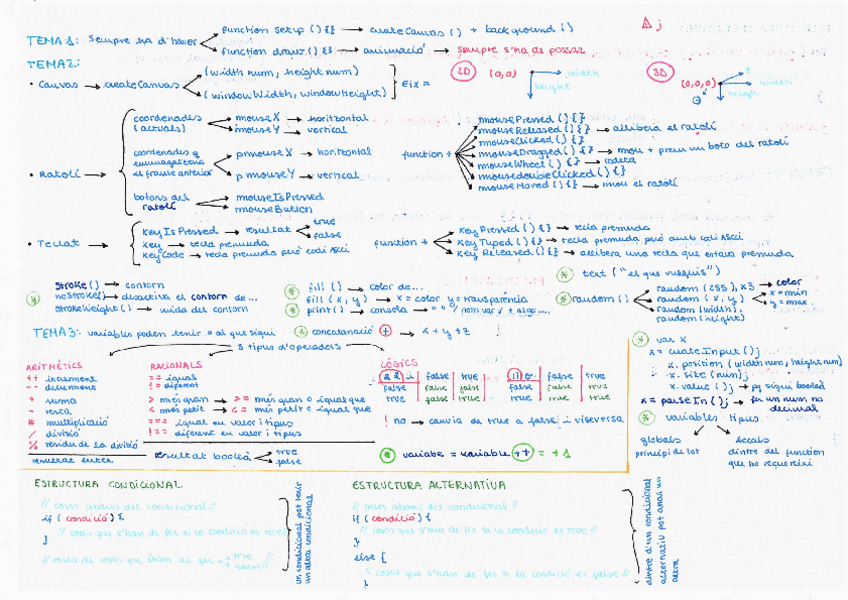 TEMA 1: sempre ha d'haver
function setup () {} → createCanvas () + background ()
function draw () {} → animació → sempre s'ha de posar
Δ ;
TEMA 2:
• Canvas → createCanvas
(width num, height num)
(windowWidth, windowHeight)
Eix =
2D (0,0) width
height
3D (0,0,0) z
width
heigh
• Ratolí →
coordenades (actuals)
mouseX → horitzontal
mouseY → vertical
coordenades q
el frame anterior
pmouseX → horitzontal
pmouseY → vertical
botons del ratolí
mouseIsPressed
mouseButton
function +
mousePressed () {}
mouseReleased () {} → allibera el ratolí
mouseClicked () {}
mouseDragged () {} → mou + prem un boto del ratolí
mouseWheel () {} → rodeta
mousedoubleClicked () {}
mouseMoved () {} → mou el ratolí
• Teclat →
keyIsPressed → resultat
true
false
key → tecla premuda
keyCode → tecla premuda però codi ASCCI
function +
keyPressed () {} → tecla premuda
keyTyped () {} → tecla premuda però amb codi ASCCI
keyReleased () {} → allibera una tecla que estava premuda
* stroke () → contorn
noStroke () → disactiva el contorn de...
strokeWeight () → mida del contorn
* fill () → color de...
fill (x, y) → x = color y = transparència
* print () → consola → = "" / nom var x + algo ....
* text ("el que vulguis")
* random ()
random (255), x3 → color
random (x, y) → x = min
y = max
random (width),
random (height)
TEMA 3: variables poden tenir = al que sigui
* concatenació + → x + y + z
3 tipus d'operadors
ARITMÈTICS
++ increment
-- decrement
+ suma
- resta
* multiplicació
/ divisió
% residu de la divisió
resultat enter
RACIONALS
== igual
!= diferent
> més gran → >= més gran o igual que
< més petit → <= més petit o igual que
=== igual en valor i tipus
!== diferent en valor i tipus
resultat booleà
true
false
LÒGICS
&& i false true
false false false
true false true
|| o false true
false false true
true true true
! no → canvia de true a false, i viseversa
* variable = variable ++ = +1
* var x
x = createInput ();
x. position (width num, height num)
x. size (num);
x. value (); → pq sigui booleà
x = parseIn (); → fa un num no decimal
* variables tipus
globals
principi de tot
locals
dintre del function
que ho requereixi
ESTRUCTURA CONDICIONAL
// coses abans del condicional //
if (condició) {
// coses que s'han de fer si la condició es true //
}
// resta de coses que s'han de fer
true
false //
un condicional pot tenir
un altre condicional
ESTRUCTURA ALTERNATIVA
// coses abans del condicional //
if (condició) {
// coses que s'han de fer si la condició és true //
}
else {
// coses que s'han de fer si la condició és false //
}
dintre d'un condicional
alternatiu pot anar un
altre